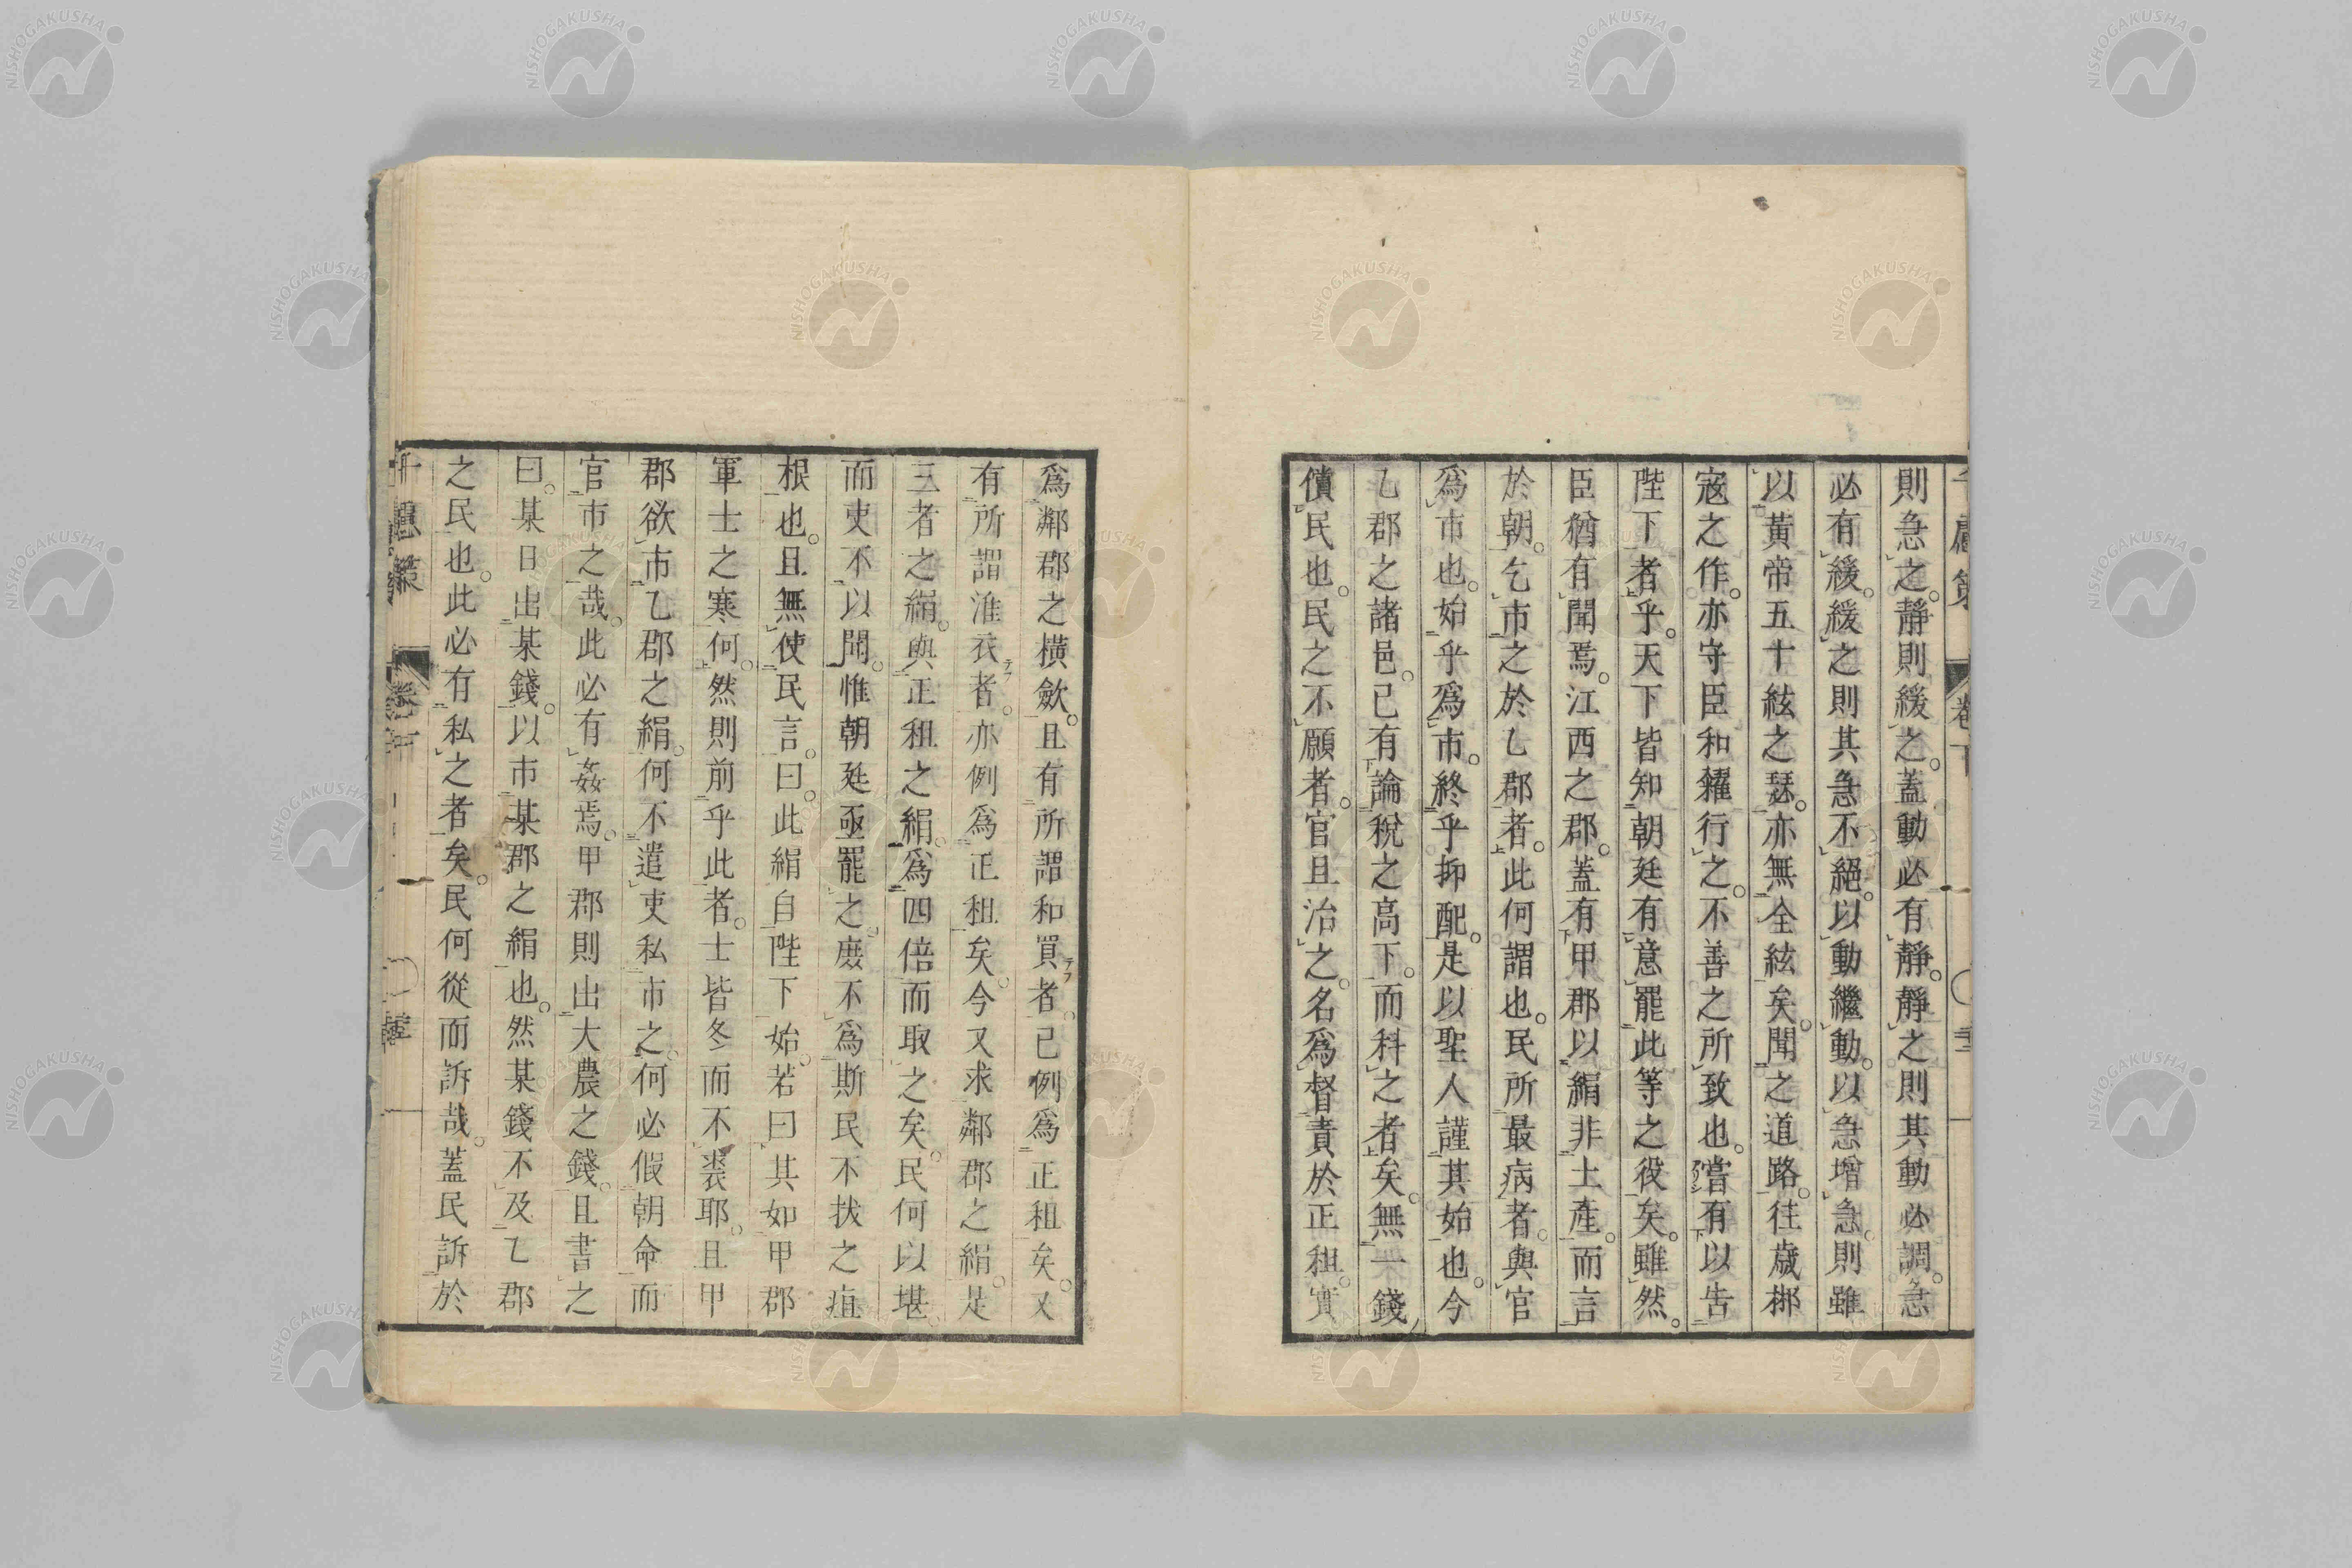 則急之靜則緩之蓋動必有靜靜之則其動必調急
必有緩緩之則其急不絕以動繼動以急增急則雖
以黃帝五十絃之瑟亦無全絃矣聞之道路往歲梛
寇之作亦守臣和糴行之不善之所致也嘗有以告
陛下者乎天下皆知朝廷有意罷此等之役矣雖然
臣猶有聞焉江西之郡蓋有甲郡以絹非土產而言
於朝乞市之於乙郡者此何謂也民所最病者與官
爲市也始乎爲市終乎抑配是以聖人謹其始也今
乙郡之諸邑已有論稅之高下而科之者矣無一錢
償民也民之不願者官且治之名爲督責於正租實
爲鄰郡之橫斂且有所謂和買者已例爲正租矣又
有所謂淮衣者亦例爲正租矣今又求鄰郡之絹是
三者之絹與正租之絹爲四倍而取之矣民何以堪
而吏不以聞惟朝廷亟罷之庶不爲斯民不拔之疽
根也且無使民言曰此絹自陛下始若曰其如甲郡
軍士之寒何然則前乎此者士皆冬而不裘耶且甲
郡欲市乙郡之絹何不遣吏私市之何必假朝命而
官市之哉此必有姦焉甲郡則出大農之錢且書之
曰某日出某錢以市某郡之絹也然某錢不及乙郡
之民也此必有私之者矣民何從而訴哉蓋民訴於
千慮策
NISHOGAKUSHA